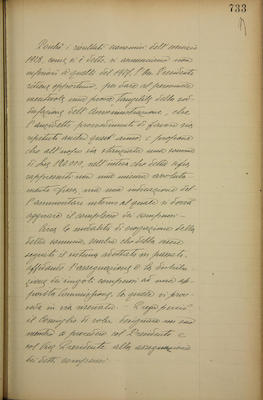 733
Poiché i risultati economici dell'esercizio
1918, come si è detto, si annunciano non
inferiori a quelli del 1917, l'On. Presidente
ritiene opportuno, per dare al personale
meritevole una prova tangibile della sod-
disfazione dell'Amministrazione, che
l'anzidetto provvedimento di favore sia
ripetuto anche quest'anno e propone
che all'uopo sia stanziata una somma
di lire 120.000, nell'intesa che detta cifra
rappresenti non una misura assoluta-
mente fissa, ma una indicazione del-
l'ammontare intorno al quale si dovrà
aggirare il complesso dei compensi.
Circa le modalità di erogazione della
detta somma, sembra che debba essere
seguito il sistema adottato in passato,
affidando l'assegnazione e la distribu-
zione dei singoli compensi ad una ap-
posita Commissione, la quale vi prov-
veda in via riservata. Prega perciò
il Consiglio di voler designare un suo
membro a procedere col Presidente e
col Vice Presidente alla assegnazione
dei detti compensi.